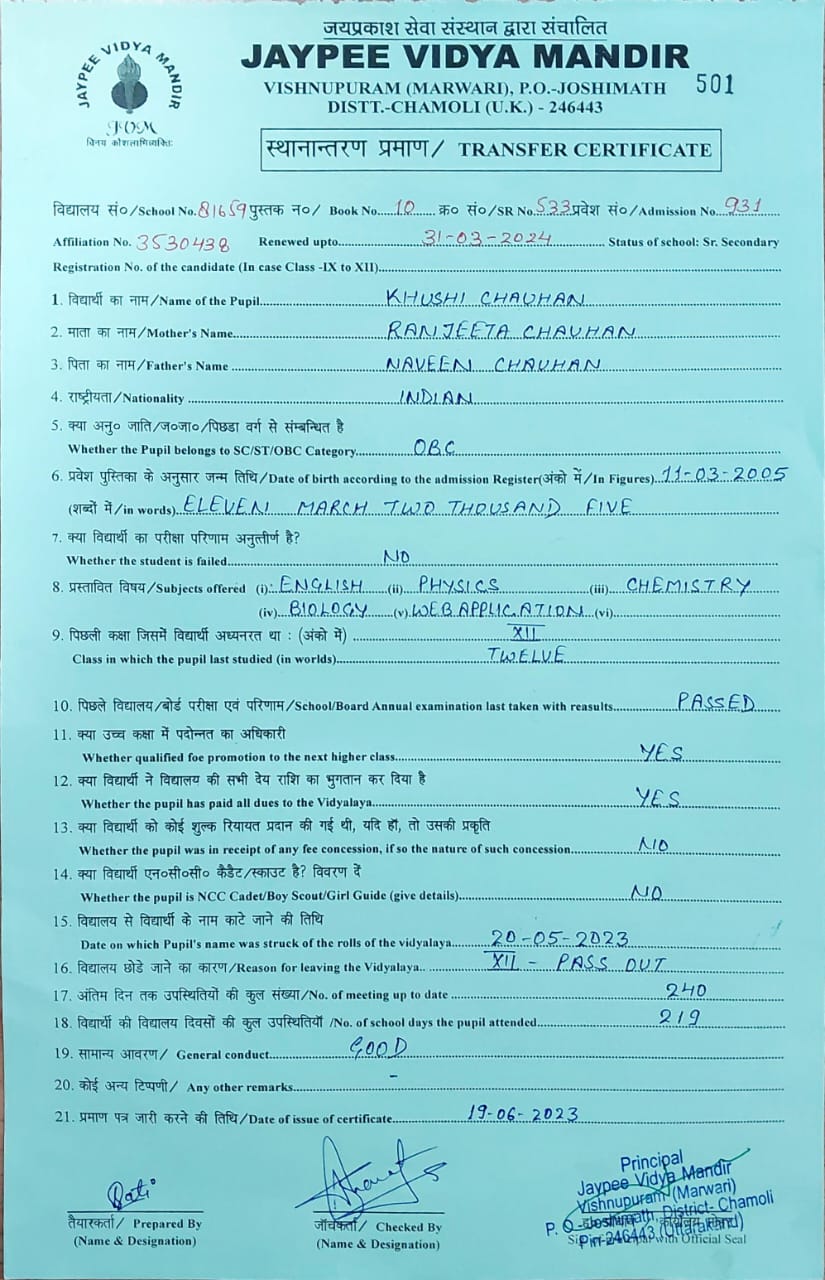 जयप्रकाश सेवा संस्थान द्वारा संचालित
JAYPEE VIDYA MANDIR
JAYPEE VIDYA MANDIR
VISHNUPURAM (MARWARI), P.O.-JOSHIMATH 501
DISTT.-CHAMOLI (U.K.) - 246443
स्थानान्तरण प्रमाण/ TRANSFER CERTIFICATE
विद्यालय सं०/School No. 81659 पुस्तक न०/ Book No. 10 क्र० सं०/SR No. 533 प्रवेश सं०/Admission No. 931
Affiliation No. 3530438 Renewed upto 31-03-2024 Status of school: Sr. Secondary
Registration No. of the candidate (In case Class -IX to XII)
1. विद्यार्थी का नाम/Name of the Pupil KHUSHI CHAUHAN
2. माता का नाम/Mother's Name RANJEETA CHAUHAN
3. पिता का नाम/Father's Name NAVEEN CHAUHAN
4. राष्ट्रीयता/Nationality INDIAN
5. क्या अनु० जाति/ज०जा०/पिछडा वर्ग से संम्बन्धित है
Whether the Pupil belongs to SC/ST/OBC Category OBC
6. प्रवेश पुस्तिका के अनुसार जन्म तिथि/Date of birth according to the admission Register(अंको में/In Figures) 11-03-2005
(शब्दों में/in words) ELEVEN MARCH TWO THOUSAND FIVE
7. क्या विद्यार्थी का परीक्षा परिणाम अनुत्तीर्ण है?
Whether the student is failed NO
8. प्रस्तावित विषय/Subjects offered (i) ENGLISH (ii) PHYSICS (iii) CHEMISTRY
(iv) BIOLOGY (v) WEB APPLICATION (vi)
9. पिछली कक्षा जिसमें विद्यार्थी अध्यनरत था : (अंको में) XII
Class in which the pupil last studied (in worlds) TWELVE
10. पिछले विद्यालय/बोर्ड परीक्षा एवं परिणाम/School/Board Annual examination last taken with reasults PASSED
11. क्या उच्च कक्षा में पदोन्नत का अधिकारी
Whether qualified foe promotion to the next higher class YES
12. क्या विद्यार्थी ने विद्यालय की सभी देय राशि का भुगतान कर दिया है
Whether the pupil has paid all dues to the Vidyalaya YES
13. क्या विद्यार्थी को कोई शुल्क रियायत प्रदान की गई थी, यदि हाँ, तो उसकी प्रकृति
Whether the pupil was in receipt of any fee concession, if so the nature of such concession NO
14. क्या विद्यार्थी एन०सी०सी० कैडैट/स्काउट है? विवरण दें
Whether the pupil is NCC Cadet/Boy Scout/Girl Guide (give details) NO
15. विद्यालय से विद्यार्थी के नाम काटे जाने की तिथि
Date on which Pupil's name was struck of the rolls of the vidyalaya 20-05-2023
16. विद्यालय छोडे जाने का कारण/Reason for leaving the Vidyalaya.. XII - PASS OUT
17. अंतिम दिन तक उपस्थितियों की कुल संख्या/No. of meeting up to date 240
18. विद्यार्थी की विद्यालय दिवसों की कुल उपस्थितियाँ /No. of school days the pupil attended 219
19. सामान्य आवरण/ General conduct GOOD
20. कोई अन्य टिप्पणी/ Any other remarks -
21. प्रमाण पत्र जारी करने की तिथि/Date of issue of certificate 19-06-2023
तैयारकर्ता/ Prepared By
(Name & Designation)
जाँचकर्ता/ Checked By
(Name & Designation)
Principal
Jaypee Vidya Mandir
Vishnupuram (Marwari)
P. O.-Joshimath, District- Chamoli
Pin-246443 (Uttarakhand)
with Official Seal